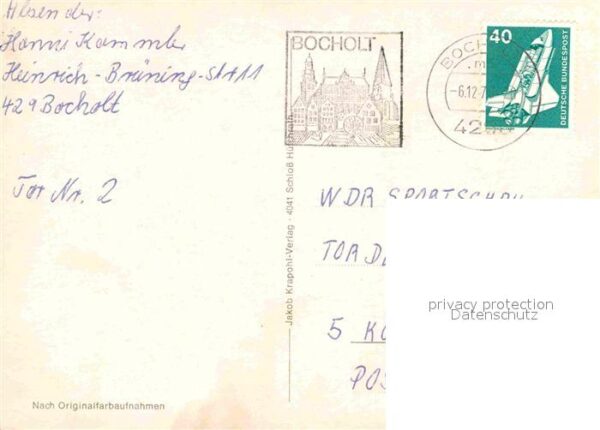 Absender:
Hanni Kammler
Heinrich-Brüning-Str 11
429 Bocholt
Tor Nr. 2
Nach Originalfarbaufnahmen
Jakob Krapohl-Verlag · 4041 Schloß Hülchrath
BOCHOLT
BOCH
-6.12.7
42
40
DEUTSCHE BUNDESPOST
WDR SPORTSCHAU
TOR D
5 K
PO
privacy protection
Datenschutz